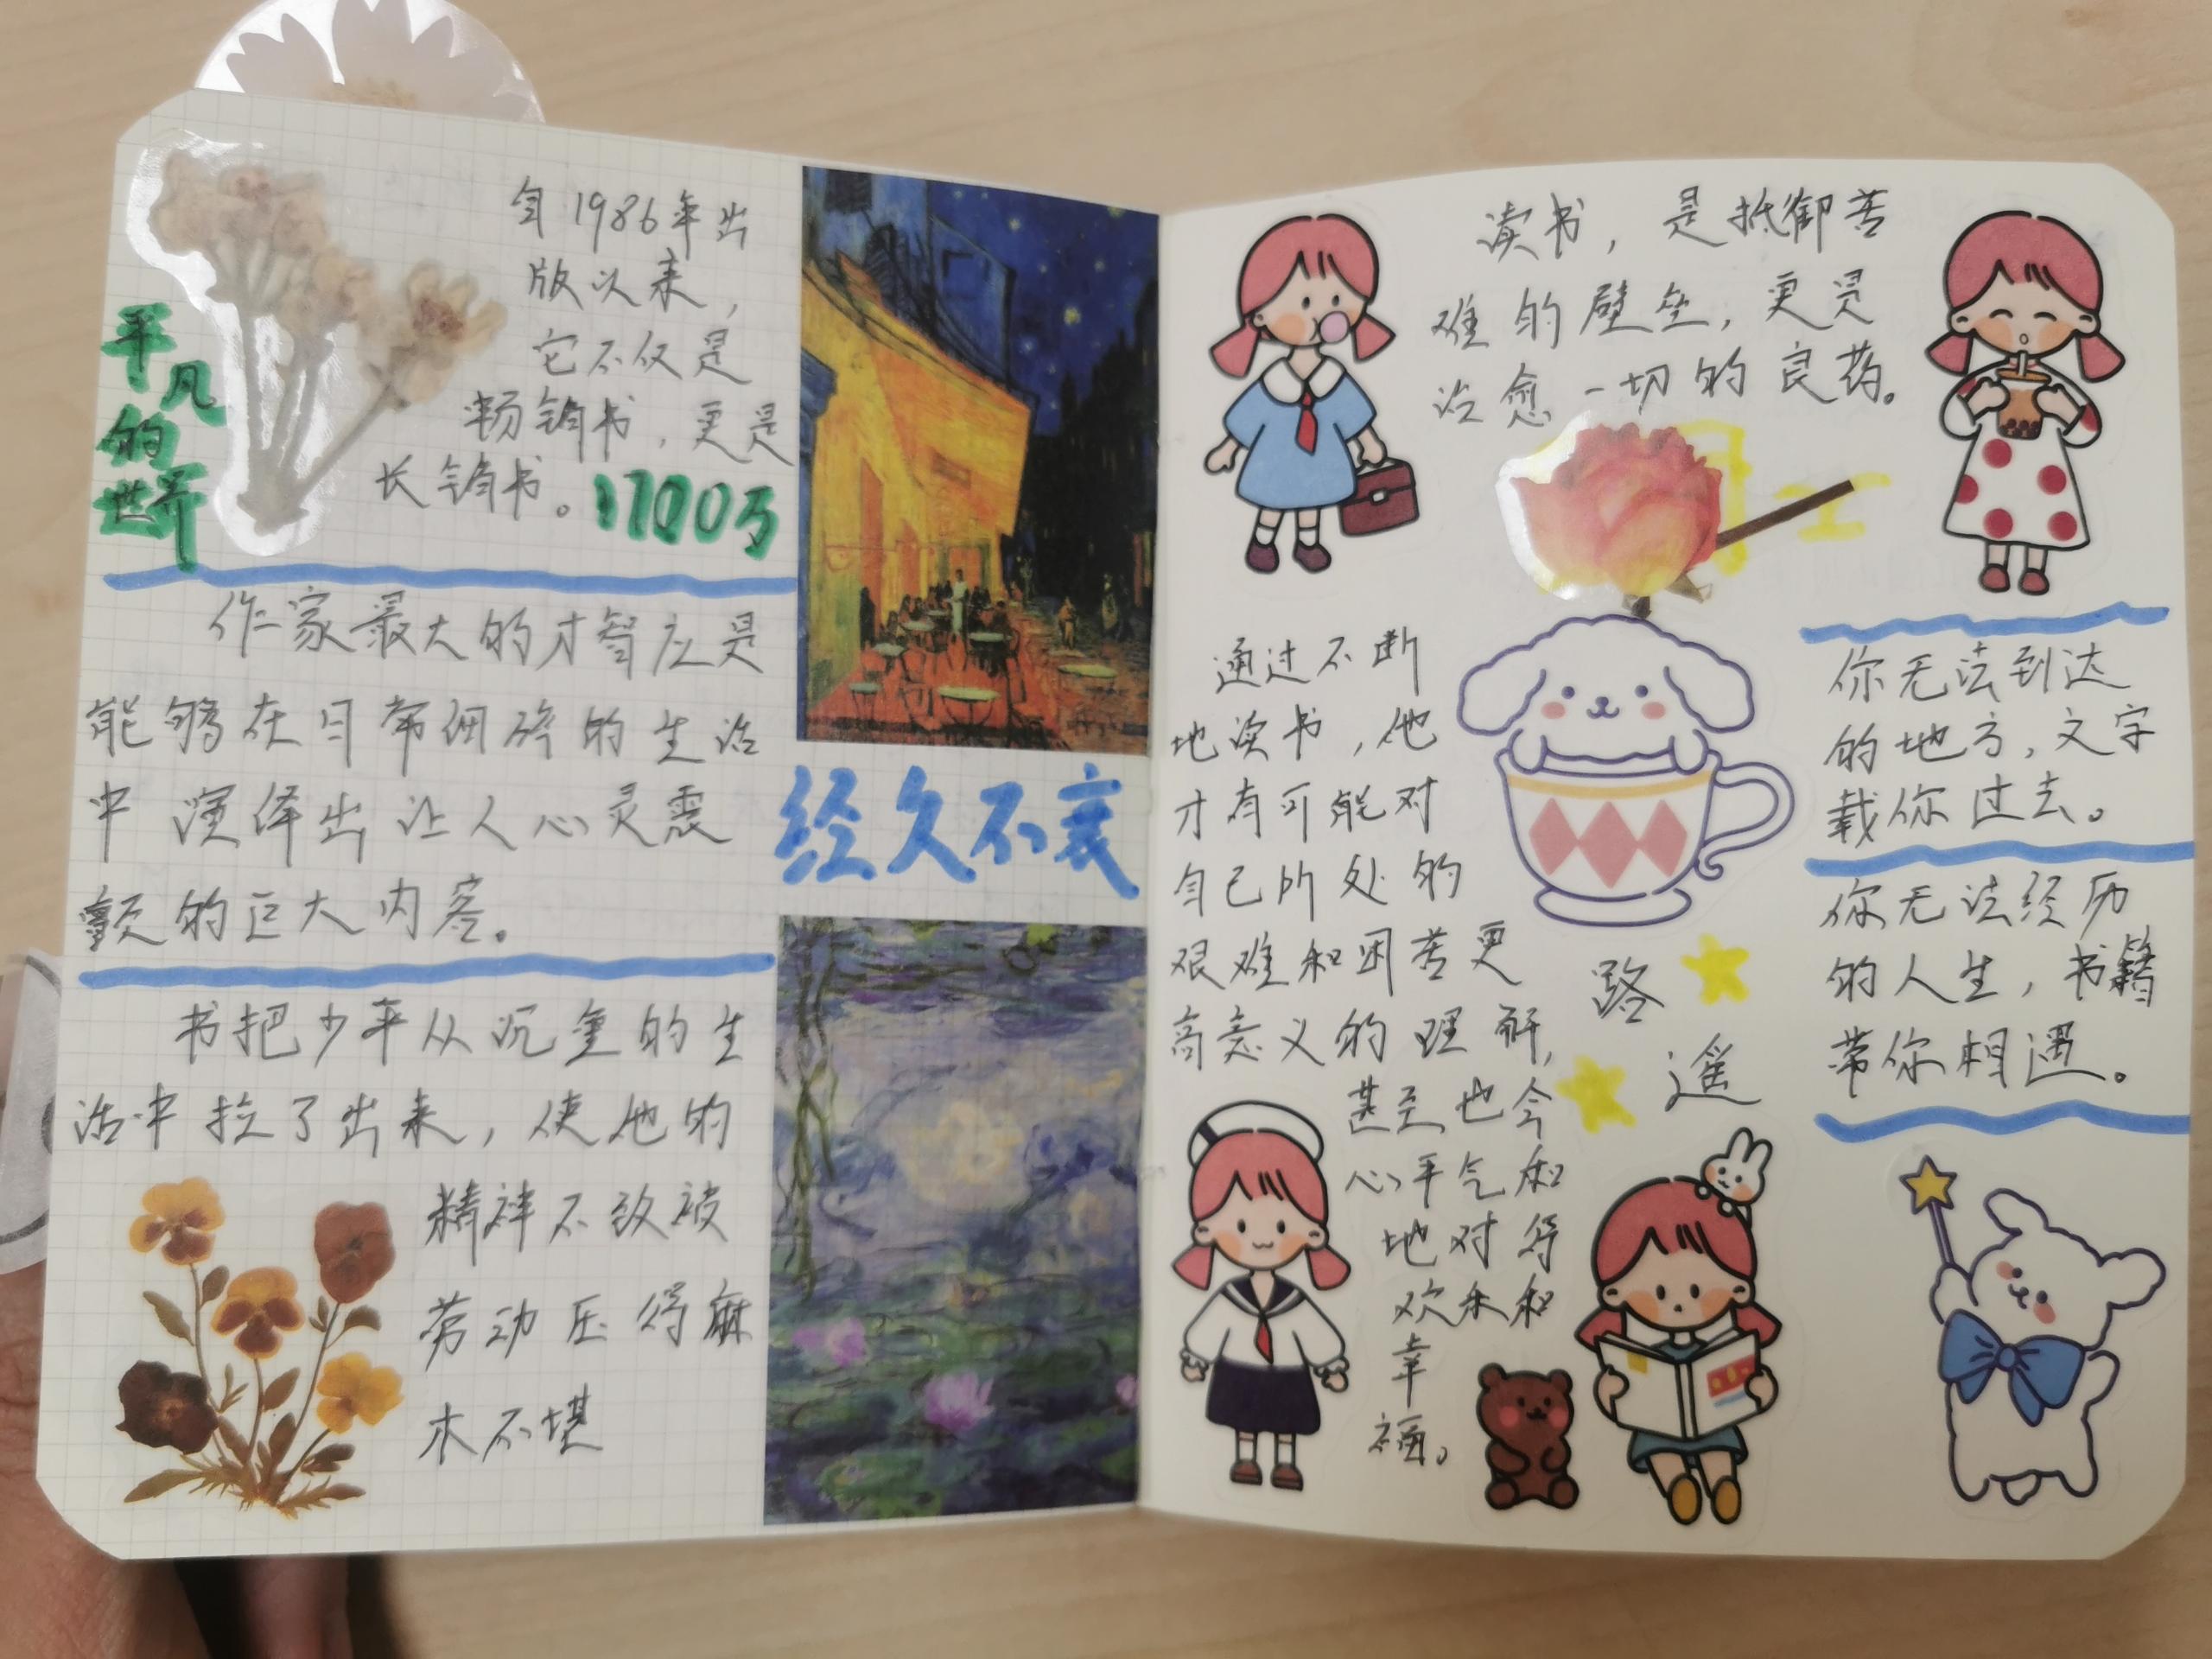 平凡
的
世界
自1986年出
版以来，
它不仅是
畅销书，更是
长销书。1700万
作家最大的才智应是
能够在日常细碎的生活
中演绎出让人心灵震
颤的巨大内容。
书把少年从沉重的生
活中拉了出来，使他的
精神不致被
劳动压得麻
木不堪
经久不衰
读书，是抵御苦
难的壁垒，更是
治愈一切的良药。
通过不断
地读书，他
才有可能对
自己所处的
艰难和困苦更
高意义的理解，
甚至也会
心平气和
地对待
欢乐和
幸
福。
路
遥
你无法到达
的地方，文字
载你过去。
你无法经历
的人生，书籍
带你相遇。